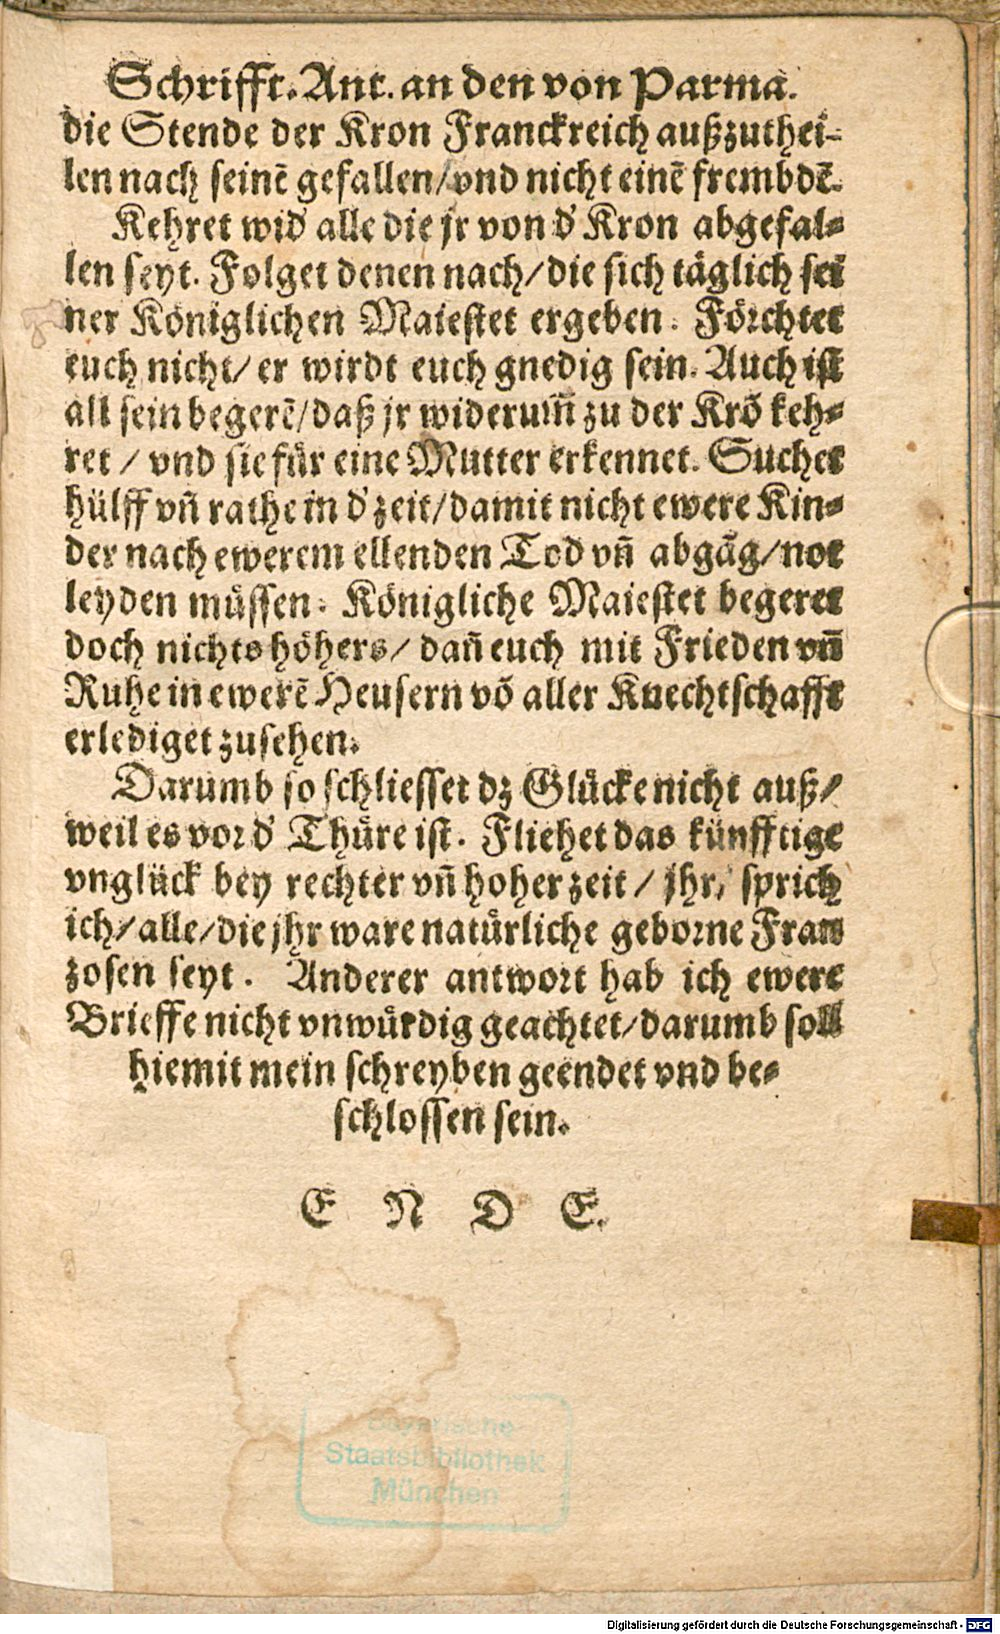 Schrifft. Ant. an den von Parma.
die Stende der Kron Franckreich außzuthei-
len nach seinẽ gefallen/vnd nicht einẽ frembdẽ.
Kehret wid' alle die jr von d' Kron abgefal-
len seyt. Folget denen nach/die sich täglich sei
ner Königlichen Maiestet ergeben. Förchtet
euch nicht/er wirdt euch gnedig sein. Auch ist
all sein begerẽ/daß jr widerum̃ zu der Krõ keh-
ret / vnd sie für eine Mutter erkennet. Suchet
hülff vñ rathe in d' zeit/damit nicht ewere Kin-
der nach ewerem ellenden Tod vñ abgãg/not
leyden müssen. Königliche Maiestet begeret
doch nichts höhers/ dañ euch mit Frieden vñ
Ruhe in ewerẽ Heusern võ aller Knechtschafft
erlediget zusehen.
Darumb so schliesset dz Glücke nicht auß/
weil es vor d' Thüre ist. Fliehet das künfftige
vnglück bey rechter vñ hoher zeit / jhr, sprich
ich/alle/die jhr ware natürliche geborne Fran
zosen seyt. Anderer antwort hab ich ewere
Brieffe nicht vnwürdig geachtet/darumb soll
hiemit mein schreyben geendet vnd be-
schlossen sein.
E N D E.
Bayerische
Staatsbibliothek
München
Digitalisierung gefördert durch die Deutsche Forschungsgemeinschaft - DFG